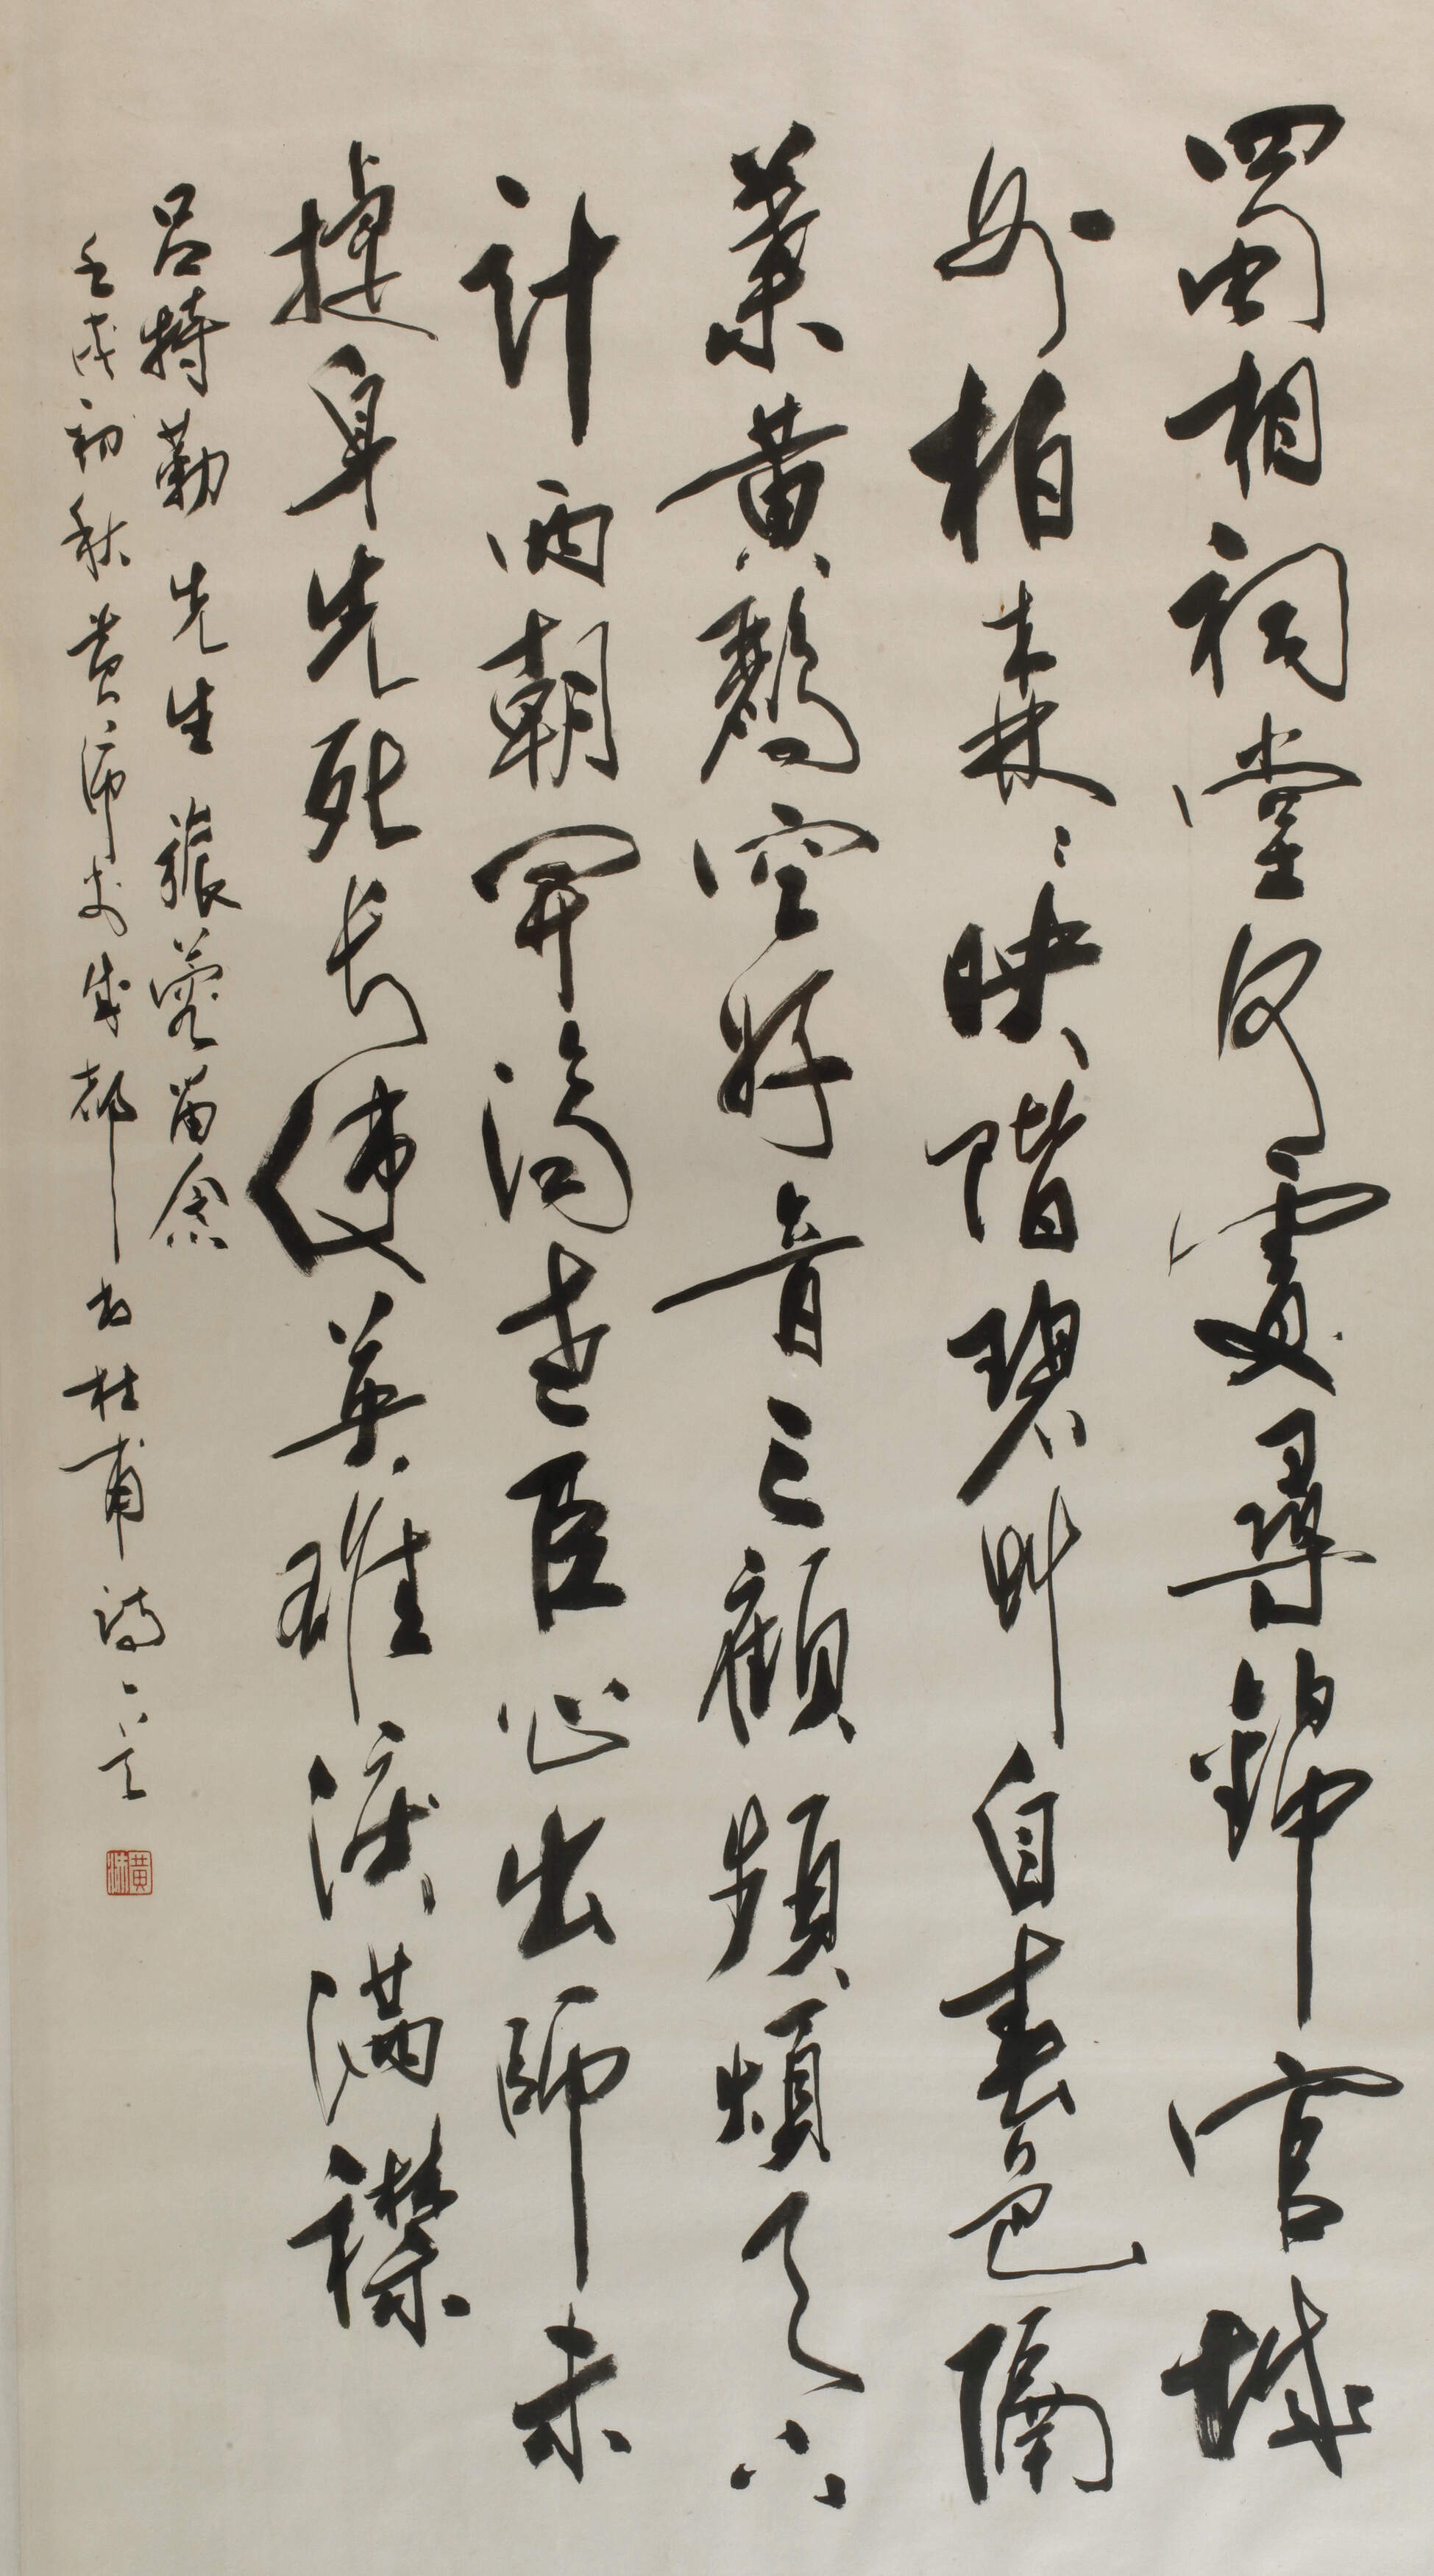 蜀相祠堂何處尋錦官城
外柏森〻映階碧艸自春色隔
葉黄鸝空好音三顧頻頻天下
計兩朝開濟老臣心出師未
捷身先死長使英雄淚滿襟
呂特勒先生 張蓉留念
壬戌初秋黄 成都 杜甫詩一首
黄